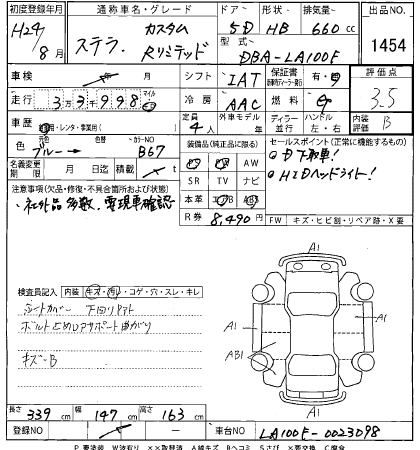 初度登録年月 通称車名・グレード ドア 形状 排気量 出品NO.
H24 8月 ステラ カスタム Rリミテッド 5D HB 660cc 1454
型式 DBA-LA100F
車検 年 月 シフト IAT 保証書 有・ 評価点
走行 33998 マイル 冷房 AAC 燃料 3.5
車歴 ・レンタ・事業用( ) 定員 4人 外車モデル 年 ディーラー 並行 ハンドル 左・右 内装 B
色 元色 ブルー→ 色替 カラーNO. B67 装備品(純正品に限る) セールスポイント(正常に機能するもの)
名義変更期限 月 日迄 積載 t AW
SR TV ナビ ・D下取車!
・HIDヘッドライト!
注意事項(欠品・修復・不具合箇所および状態) 本革
・社外品多数、要現車確認 R券 8,490円 FW キズ・ヒビ割・リペア跡・X要
A1
検査員記入 内装 キズ・汚れ・コゲ・穴・スレ・キレ
シートカバー 下回り
ボルト止めコアサポート曲がり A1 A1
キズ-B AB1
A1
長さ 339cm 幅 147cm 高さ 163cm
登録NO ー 車台NO LA100F-0023098
P要塗装 W波有り ××取替済 A線キズ Bヘコミ Sさび ×要交換 C腐食